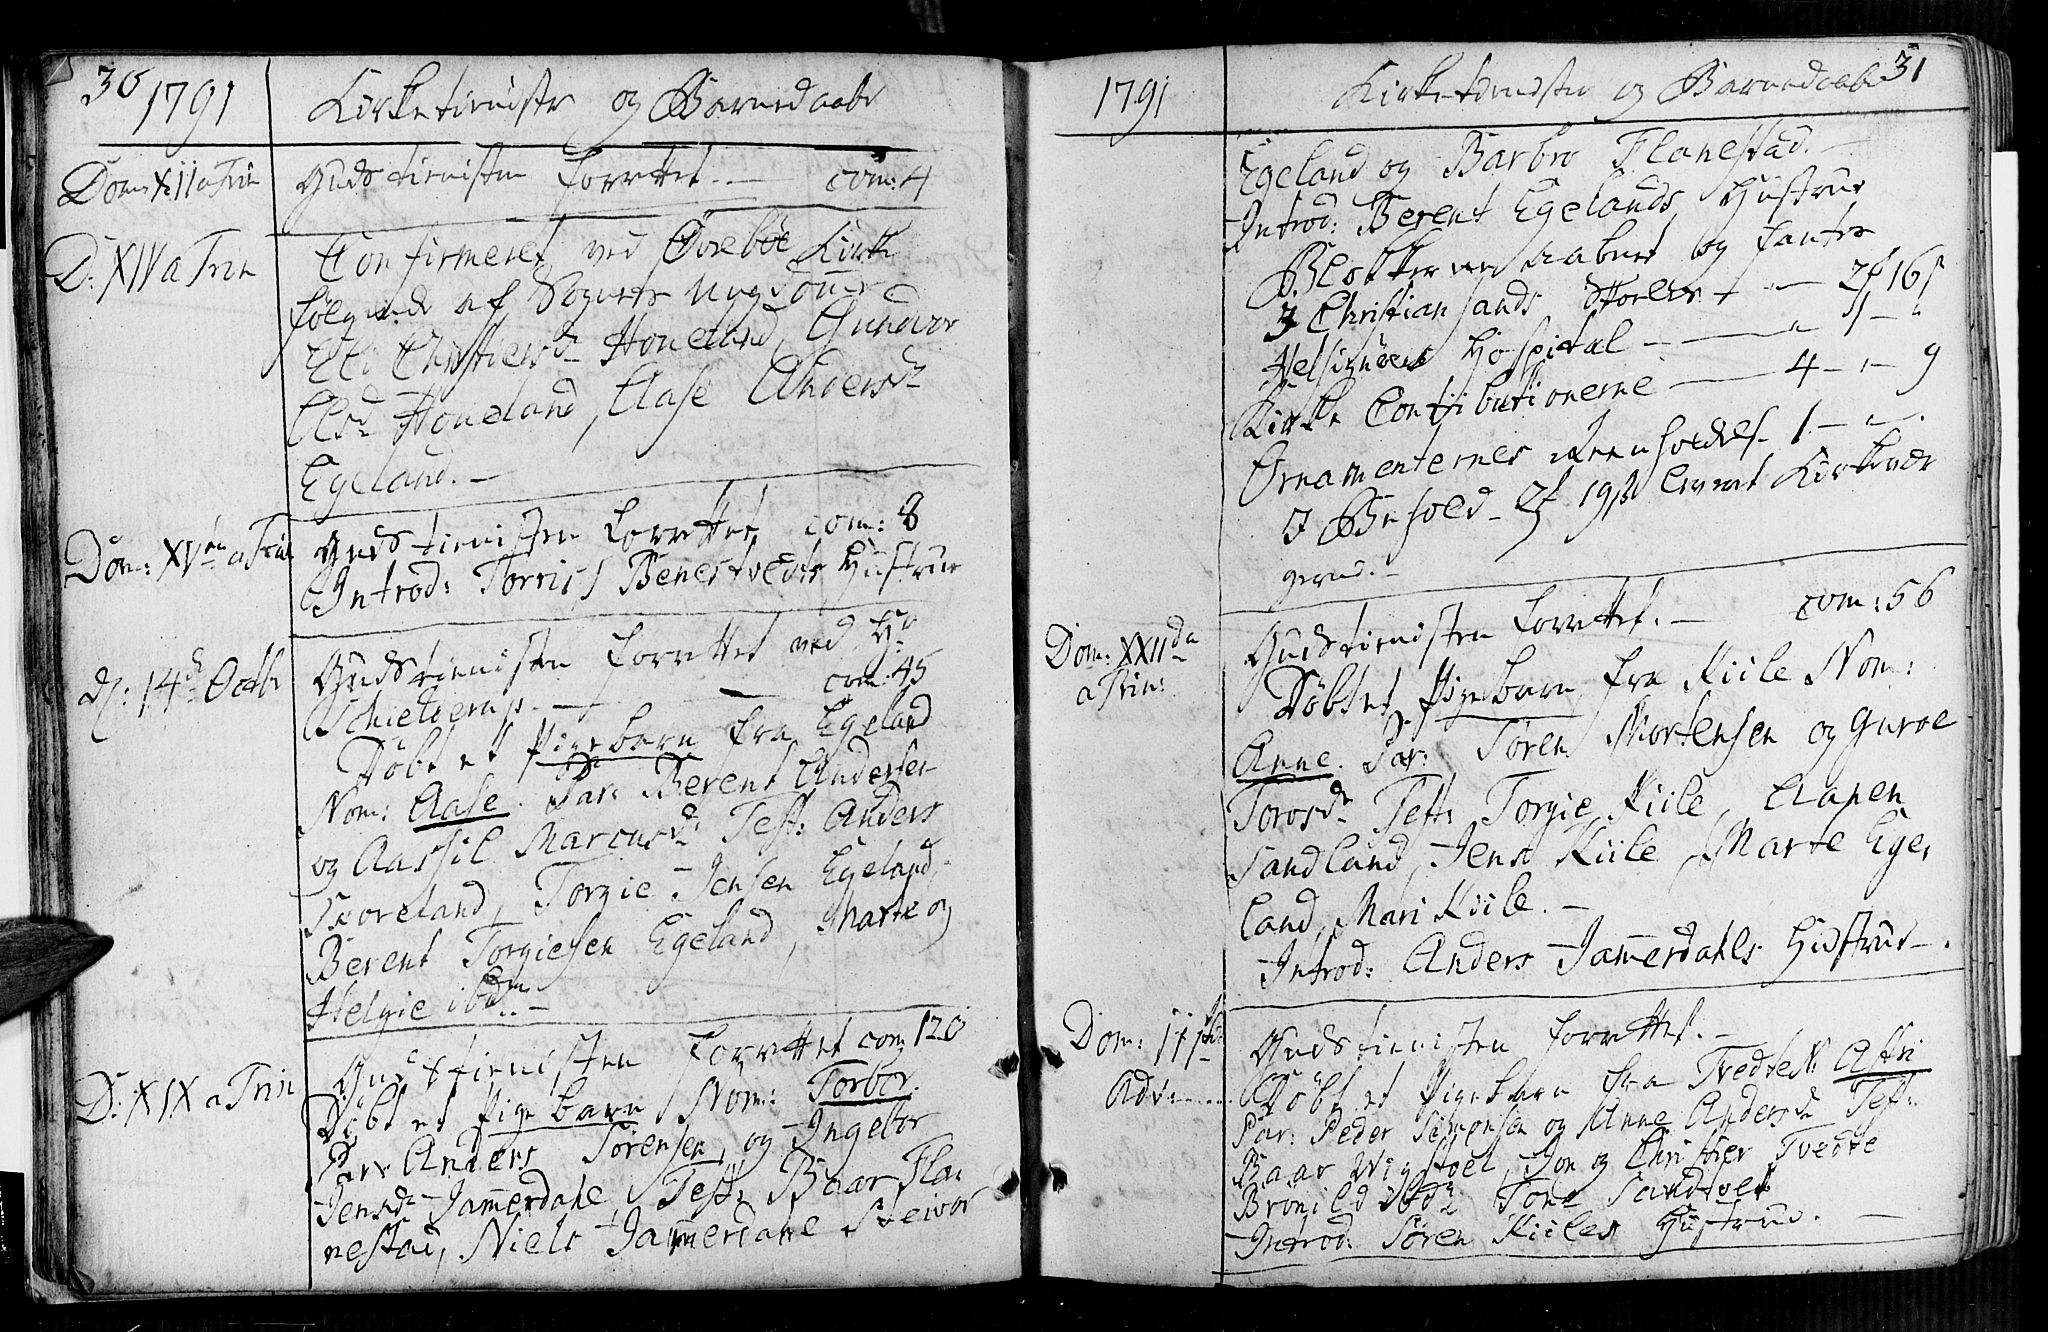 30
1791
Kirketieniste og Barnedaabe
Dom: XIII a Trin
Gudstienisten forrettet. — com: 4
D: XIV a Trin
Confirmeret ved Öveböe Kirke
fölgende af Sognets Ungdom
Eli Christiensd: Honeland, Gundvor
Olsd: Honeland, Aase Andersd:
Egeland. —
Dom: XVen a Trin
Gudstienisten forrettet com: 8
Introd: Torris Benestvedts Hustrue
d: 14de Octbr
Gudstienisten forrettet ved Hr
Schielderup. — com: 45
Döbt et Pigebarn fra Egeland
Nom: Aase. Par: Berent Andersen
og Aassil Marcusd: Test: Anders
Skoreland, Torgie Jensen Egeland,
Berent Torgiesen Egeland, Marte og
Helgie ibdm. —
D: XIX a Trin
Gudstienisten forrettet com 120
Döbt et Pigebarn Nom: Torbor.
Par: Anders Sörensen, og Ingebor
Jensd: Jammerdahl, Test: Baar Fla-
nestad, Niels Jammerdahl Steivor
31
1791
Kirketieniste og Barnedaabe
Egeland og Barbro Flanestad. —
Introd: Berent Egelands Hustrue
Blokken aabnet og fantes
I Christiansands Stoelens — 2f 16s
Helsignörs Hospital — 1 —
Kirke Contributionerne — 4 — 9
Ornamenternes Reenholdels 1 —
I Behold — 2f 19s leveret Kirkevær
gerne. —
Dom: XXIIda
a Trin:
Gudstienisten forrettet. — com: 56
Döbt et Pigebarn fra Kiile Nom:
Anne. Par: Sören Mortensen og Guroe
Torosd: Test: Torgie Kiile, Aapen
Sandland, Jens Kiile, Marte Ege-
land, Mari Kiile. —
Introd: Anders Jammerdahls Hustrue —.
Dom: IIItia
Adv:
Gudstienisten forrettet. —
Döbt et Pigebarn fra Tvedte N: Astri
Par: Peder Simonsen og Anne Andersd: Test:
Baar Wigstöel, Jon og Christier Tvedte
Bronild ibdm Tone Sandvet
Introd: Sören Kiiles Hustrue. —